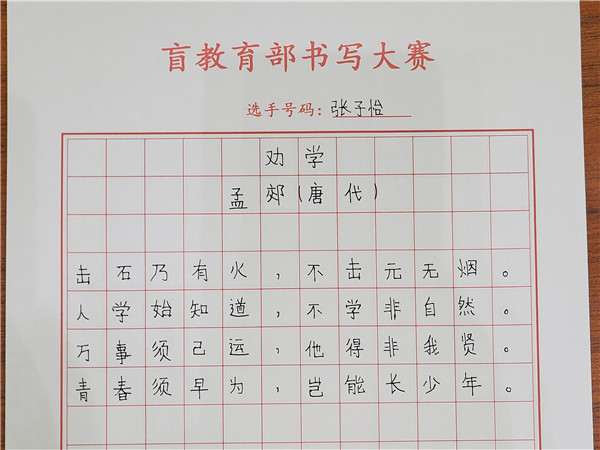 盲教育部书写大赛
选手号码：张子怡
劝学
孟郊(唐代)
击石乃有火，不击元无烟。
人学始知道，不学非自然。
万事须己运，他得非我贤。
青春须早为，岂能长少年。